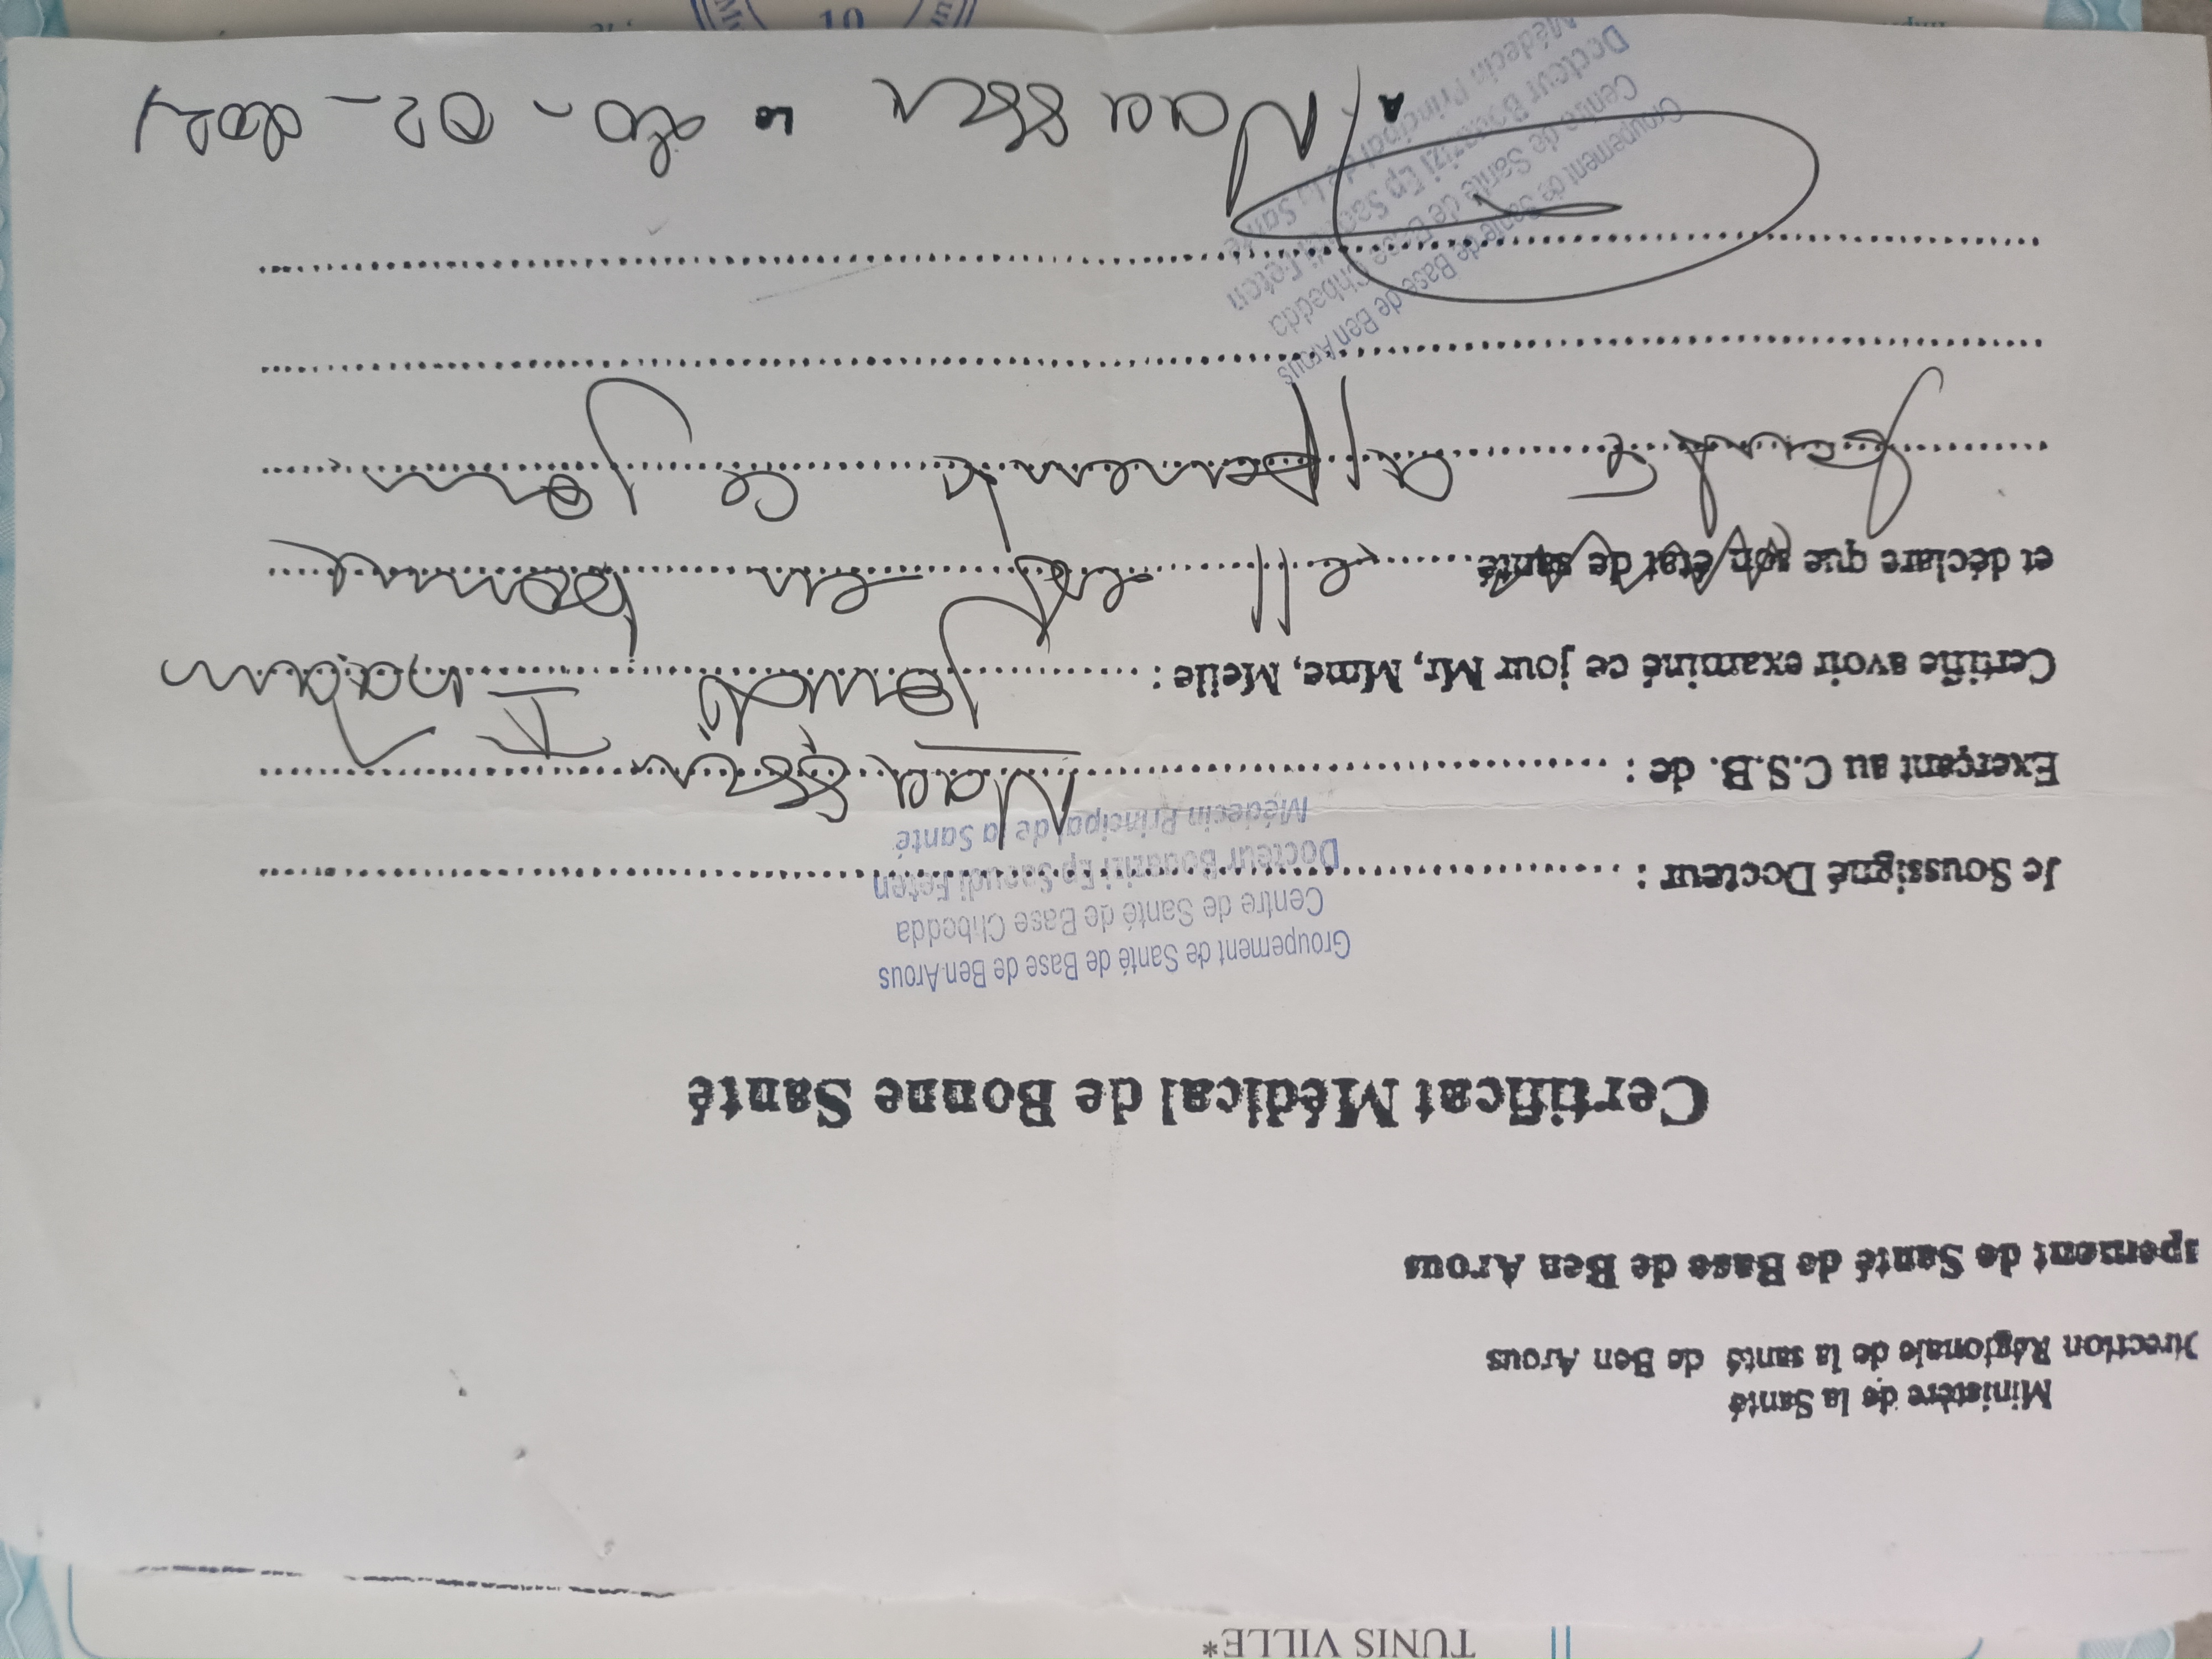 TUNIS VILLE*
Ministère de la Santé
Direction Régionale de la santé de Ben Arous
upement de Santé de Base de Ben Arous
Certificat Médical de Bonne Santé
Groupement de Santé de Base de Ben Arous
Centre de Santé de Base Chbedda
Docteur Bouazizi Ep Saoudi Feten
Médecin Principal de la Santé
Je Soussigné Docteur :
Exerçant au C.S.B. de :
Certifie avoir examiné ce jour Mr, Mme, Melle :
et déclare que son état de santé elle est en bonne
santé apparente ce jour
Groupement de Santé de Base de Ben Arous
Centre de Santé de Base Chbedda
Docteur Bouazizi Ep Saoudi Feten
Médecin Principal de la Santé
A Le
10